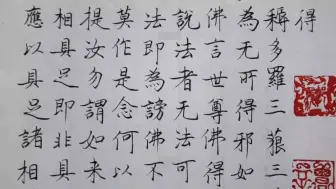 得
耨多羅三藐三
為无所得邪如
佛言世尊佛得
說法者无法可
法即為謗佛不
莫作是念何以
提汝勿謂如来
相具足即非具
應以具足諸相